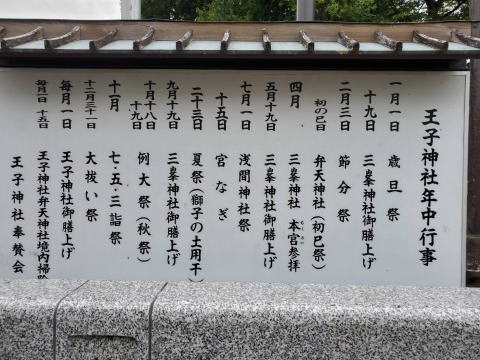 王子神社年中行事
一月一日　歳旦祭
十九日　三峯神社御膳上げ
二月三日　節分祭
初の巳日　弁天神社（初巳祭）
四月　三峯神社　本宮参拝
五月十九日　三峯神社御膳上げ
七月一日　浅間神社祭
十五日　宮なぎ
二十三日　夏祭（獅子の土用干）
九月十九日　三峯神社御膳上げ
十月十八日　十九日　例大祭（秋祭）
十一月　七・五・三詣祭
十二月三十一日　大祓い祭
毎月一日　王子神社御膳上げ
毎月一日　十五日　王子神社弁天神社境内掃除
王子神社奉賛会